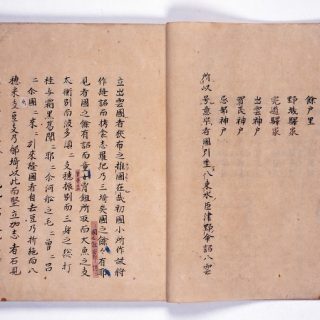 餘戸里
野城驛家
宍道驛家
出雲神戸
賀茂神戸
忌部神戸
所以号意宇者國引坐八束水臣津野命詔八雲
立出雲國者狭布之推國在哉初國小所作故将
作縫詔而栲衾志羅紀乃三埼矣國之餘々有耶
見者國之餘有詔而童女胷鉏所取而大魚之支
太衝別而波多須々支穂振別而三身之綱打
挂而霜黒葛聞々耶々尓河船之毛々曽々呂
々尓國々来々引来縫國者自去豆乃折絶而八
穂米支豆支乃御埼以此而堅立加志者石見